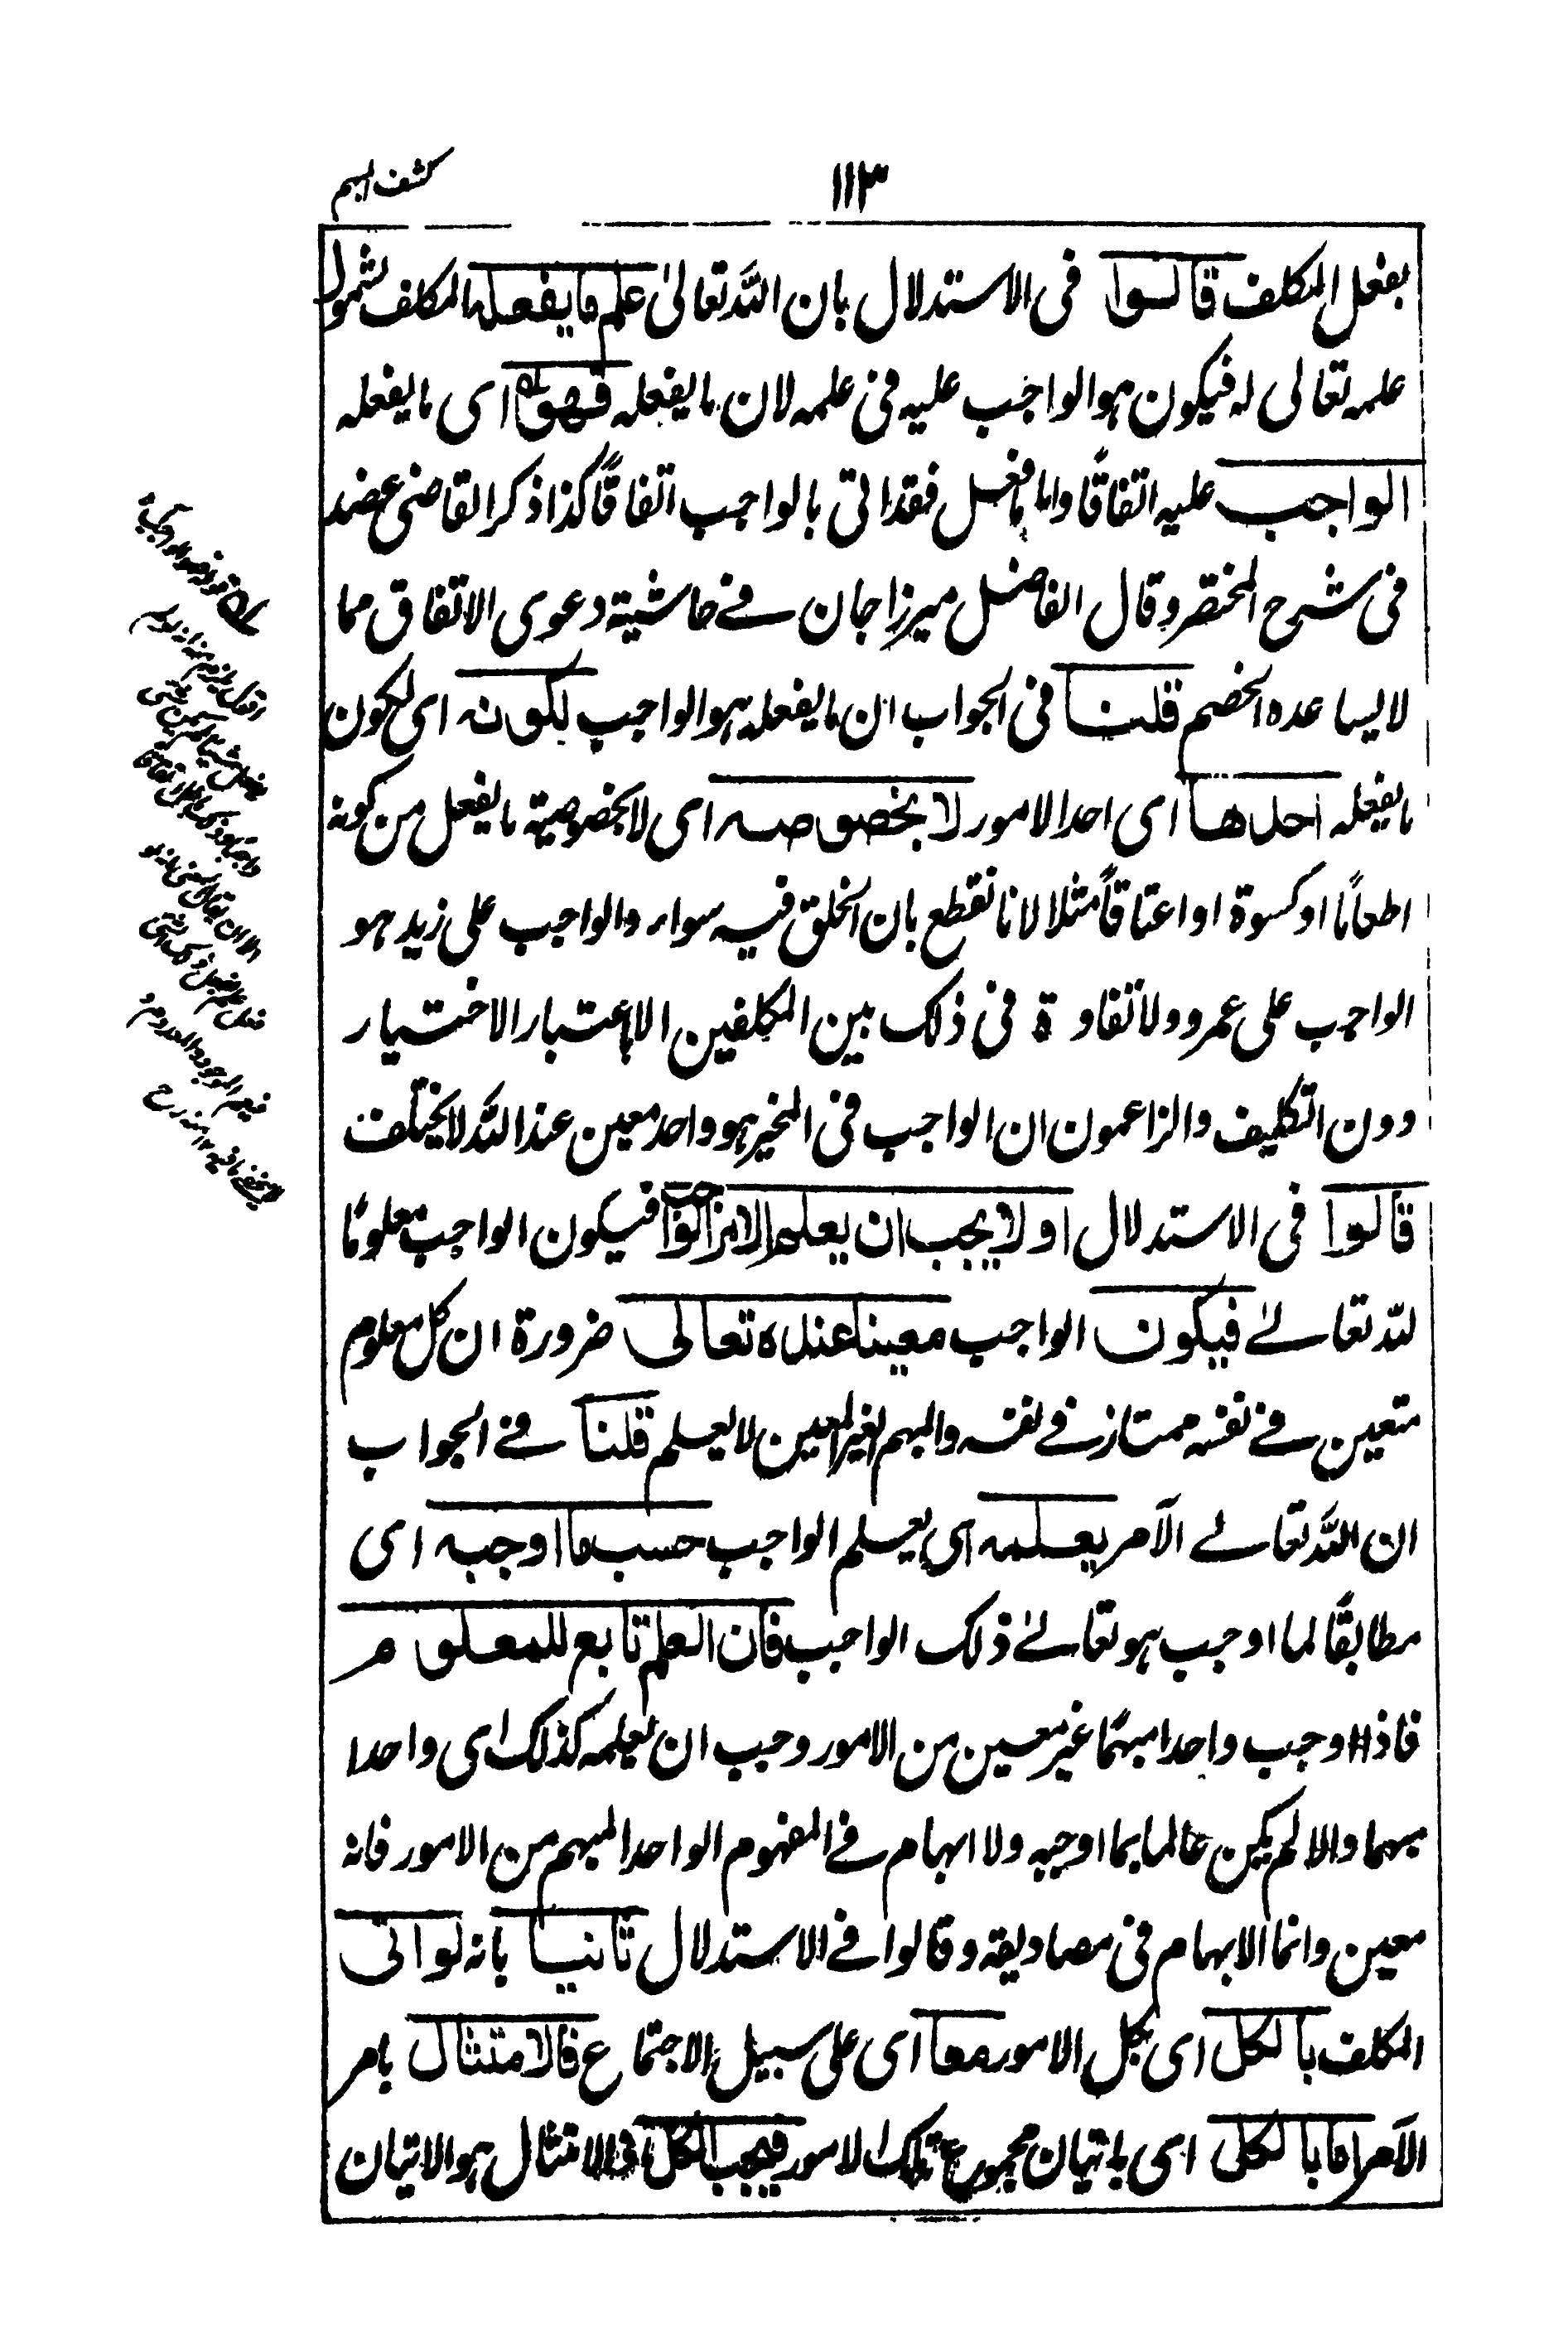 ١١٣
كشف المبهم
بفعل المكلف قالوا فى الاستدلال بان الله تعالىٰ علم ما يفعله المكلف لشمول
علمه تعالى له فيكون هو الواجب عليه فى علمه لان ما يفعله فهو اى ما يفعله
الواجب عليه اتفاقًا واما ما فعل فقد اتى بالواجب اتفاقًا كذا ذكر القاضى عضد
فى شرح المختصر وقال الفاضل ميرزا جان فى حاشية دعوى الاتفاق مما
لا يساعده الخصم قلنا فى الجواب ان ما يفعله هو الواجب لكونه اى لكون
ما يفعله احدها اى احد الامور لا بخصوصه اى لا بخصوصية ما يفعل من كونه
اطعامًا او كسوة او اعتاقًا مثلا لانا نقطع بان الخلق فيه سواء والواجب على زيد هو
الواجب على عمرو ولا تفاوة فى ذلك بين المكلفين الا باعتبار الاختيار
دون التكليف والزاعمون ان الواجب فى المخير هو واحد معين عند الله لا يختلف
قالوا فى الاستدلال اولا يجب ان يعلم الامر الواجب فيكون الواجب معلومًا
لله تعالىٰ فيكون الواجب معينا عنده تعالى ضرورة ان كل معلوم
متعين فى نفسه ممتاز فى نفسه والمبهم الغير المعين لا يعلم قلنا فى الجواب
ان الله تعالى الآمر يعلمه اى يعلم الواجب حسب ما اوجبه اى
مطابقًا لما اوجب هو تعالىٰ ذلك الواجب فان العلم تابع للمعلوم
فاذا اوجب واحدا مبهمًا غير معين من الامور وجب ان يعلمه كذلك اى واحدا
مبهما والا لم يكن عالما بما اوجبه ولا ابهام فى المفهوم الواحد المبهم من الامور فانه
معين وانما الابهام فى مصاديقه وقالوا فى الاستدلال ثانيا بانه لو اتى
المكلف بالكل اى بكل الامور معا اى على سبيل الاجتماع فالامتثال بامر
الآمر اما بالكل اى باتيان مجموع تلك الامور فيجب الكل اذ الامتثال هو الاتيان